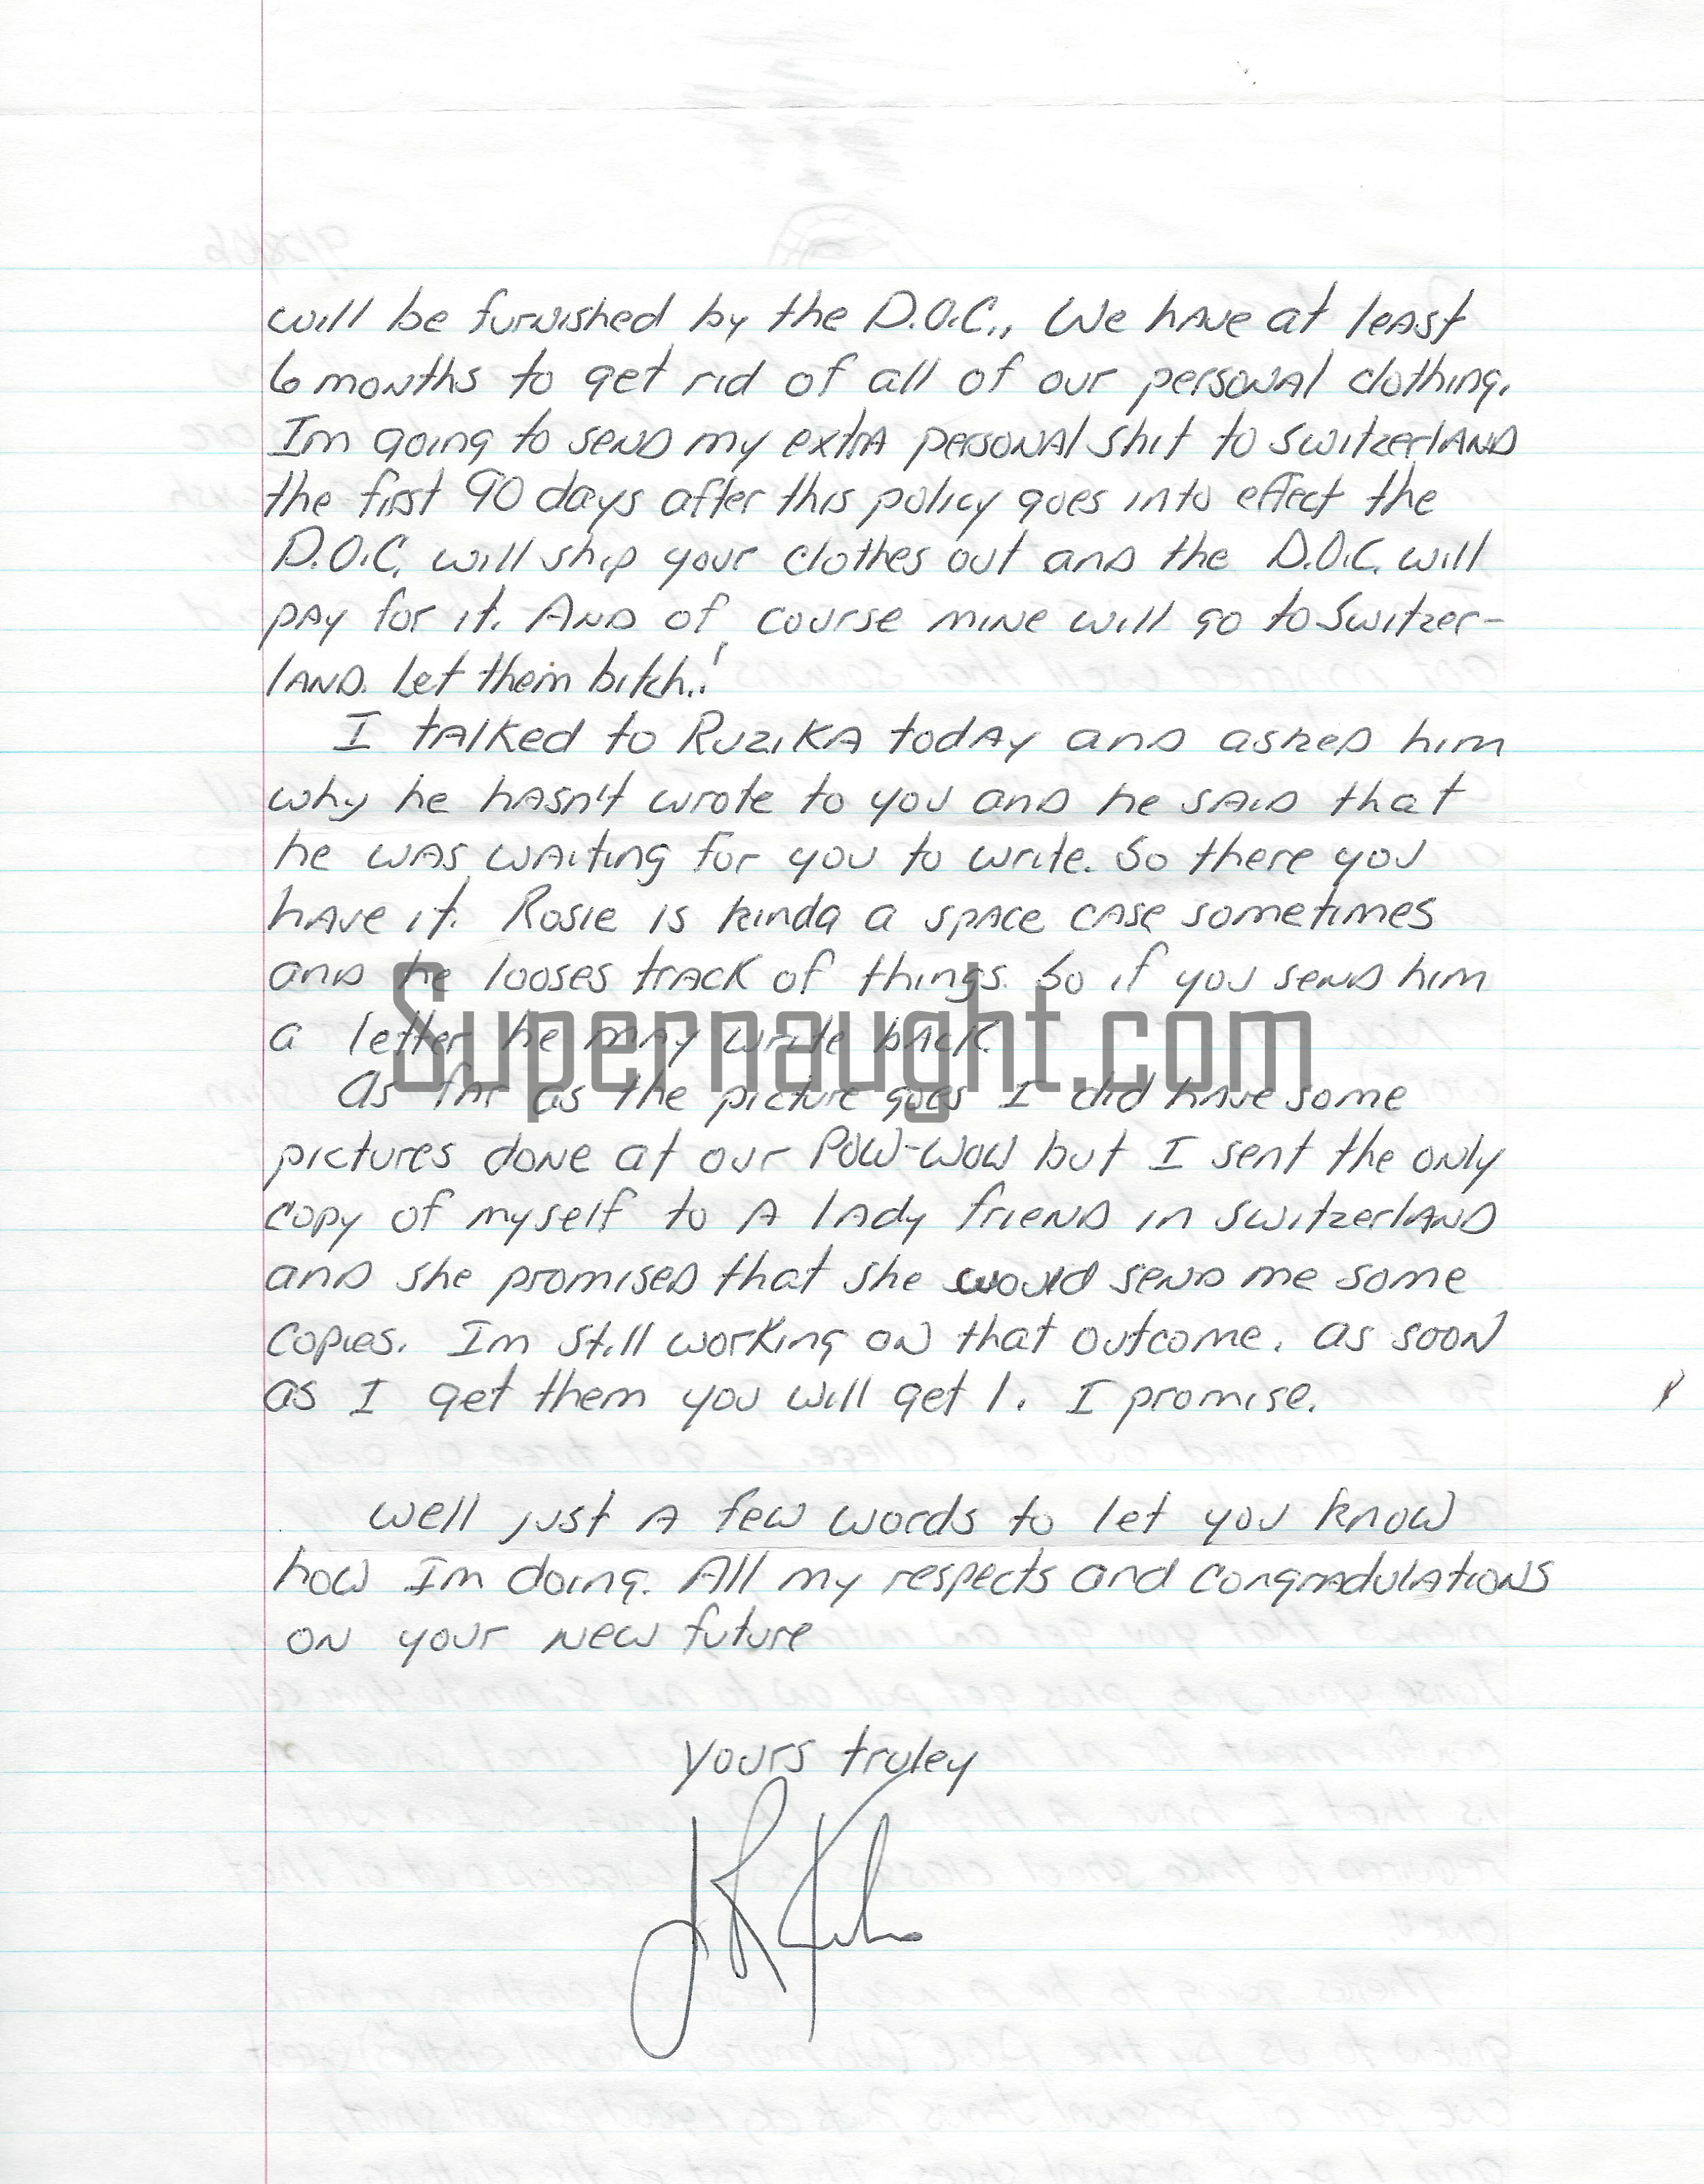 will be furnished by the D.O.C., We have at least
6 months to get rid of all of our personal clothing.
Im going to send my extra personal shit to Switzerland
the first 90 days after this policy goes into effect the
D.O.C. will ship your clothes out and the D.O.C. will
pay for it. And of course mine will go to Switzer-
land. Let them bitch.!
I talked to Ruzika today and asked him
why he hasn't wrote to you and he said that
he was waiting for you to write. So there you
have it. Rosie is kinda a space case sometimes
and he looses track of things. So if you send him
a letter he may write back.
Supernaught.com
As far as the picture goes I did have some
pictures done at our Pow-Wow but I sent the only
copy of myself to a lady friend in Switzerland
and she promised that she would send me some
copies. Im still working on that outcome. as soon
as I get them you will get 1. I promise.
Well just a few words to let you know
how Im doing. All my respects and congradulations
on your new future
Yours truley